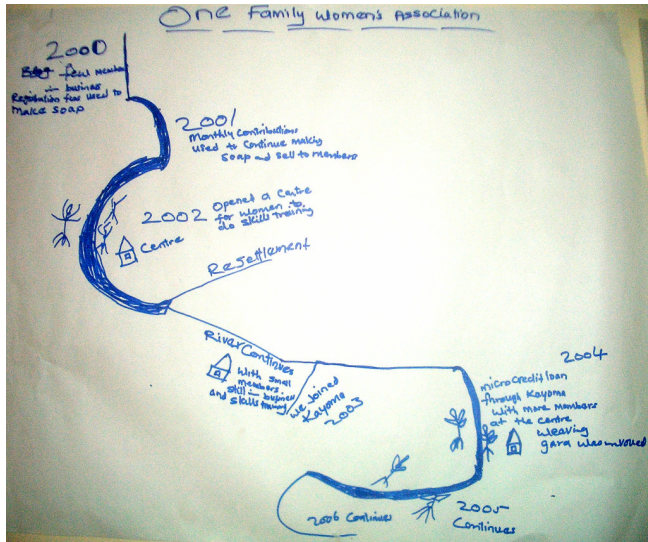 One Family Women's Association
2000
few member
in business
Registration fees used to
make soap
2001
Monthly contributions
used to continue making
soap and sell to members
2002
Opened a Centre
for women to
do skills training
Centre
Resettlement
River Continues
With small
members
skill in business
and skills training
We joined
Kayoma
2003
2004
microcredit loan
through Kayoma
with more members
at the centre
weaving
gara was involved
2005
Continues
2006 Continues